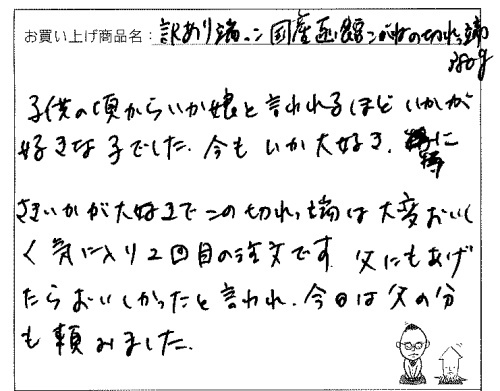 お買い上げ商品名：訳あり端っこ 国産函館こがねの切れっ端
280g
子供の頃からいか娘と言われるほど いかが
好きな子でした. 今も いか大好き. 特に
さきいかが大好きで この切れっ端は 大変おいし
く 気に入り 2回目の注文です. 父にもあげ
たらおいしかったと言われ. 今回は 父の分
も 頼みました.